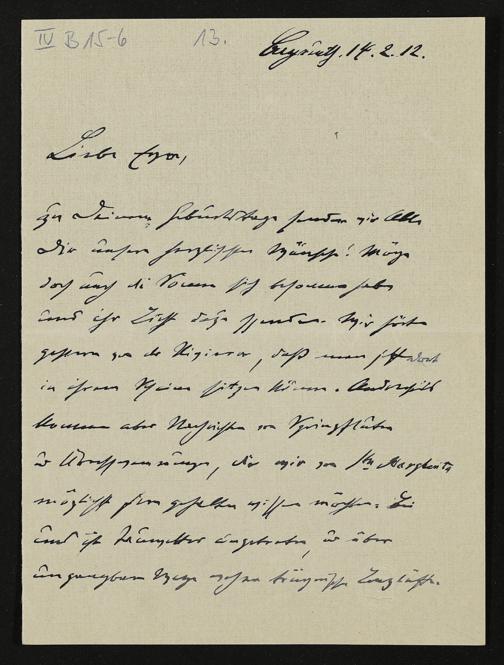 IV B 15-6 13.
Bayreuth. 14. 2. 12.
Liebe Eva,
zu Deinem Geburtstage senden wir Alle
Dir unsere herzlichsten Wünsche! Möge
doch auch die Sonne sich besonnen haben
und ihr Licht dazu spenden. Wir hörten
gestern von der Riviera, daß man jetzt
in ihrem Scheine sitzen könne. Anderseits
kommen aber Nachrichten von Springfluten
u Überschwemmungen, die wir von Sta Margherita
möglichst fern gehalten wissen möchten. Bei
uns ist Tauwetter eingetreten, u über
ungangbare Wege wehen Lüfte.